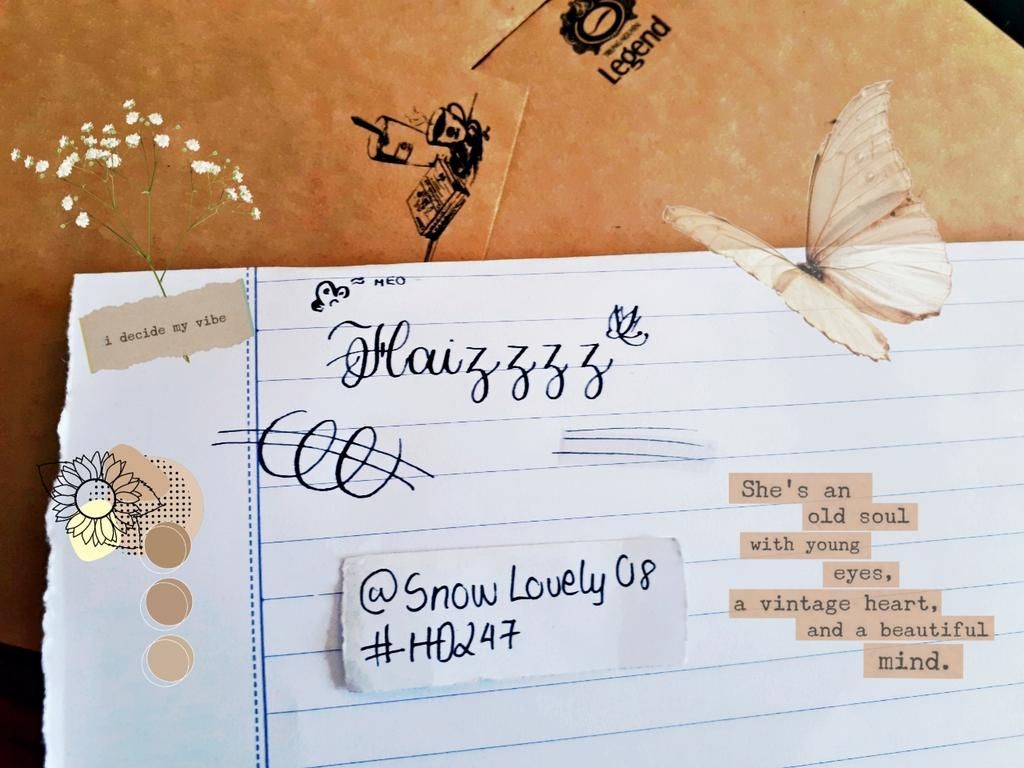 Legend
≈ MEO
Haizzzz
i decide my vibe
@Snow Lovely 08
#HD247
She's an
old soul
with young
eyes,
a vintage heart,
and a beautiful
mind.